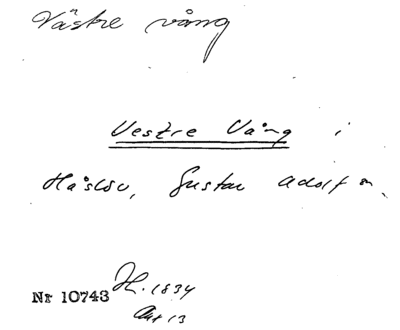 Västre vång
Vestre Vång i
Håslöv, Gustav Adolf sn.
Nr 10743 H. 1834
Akt 13